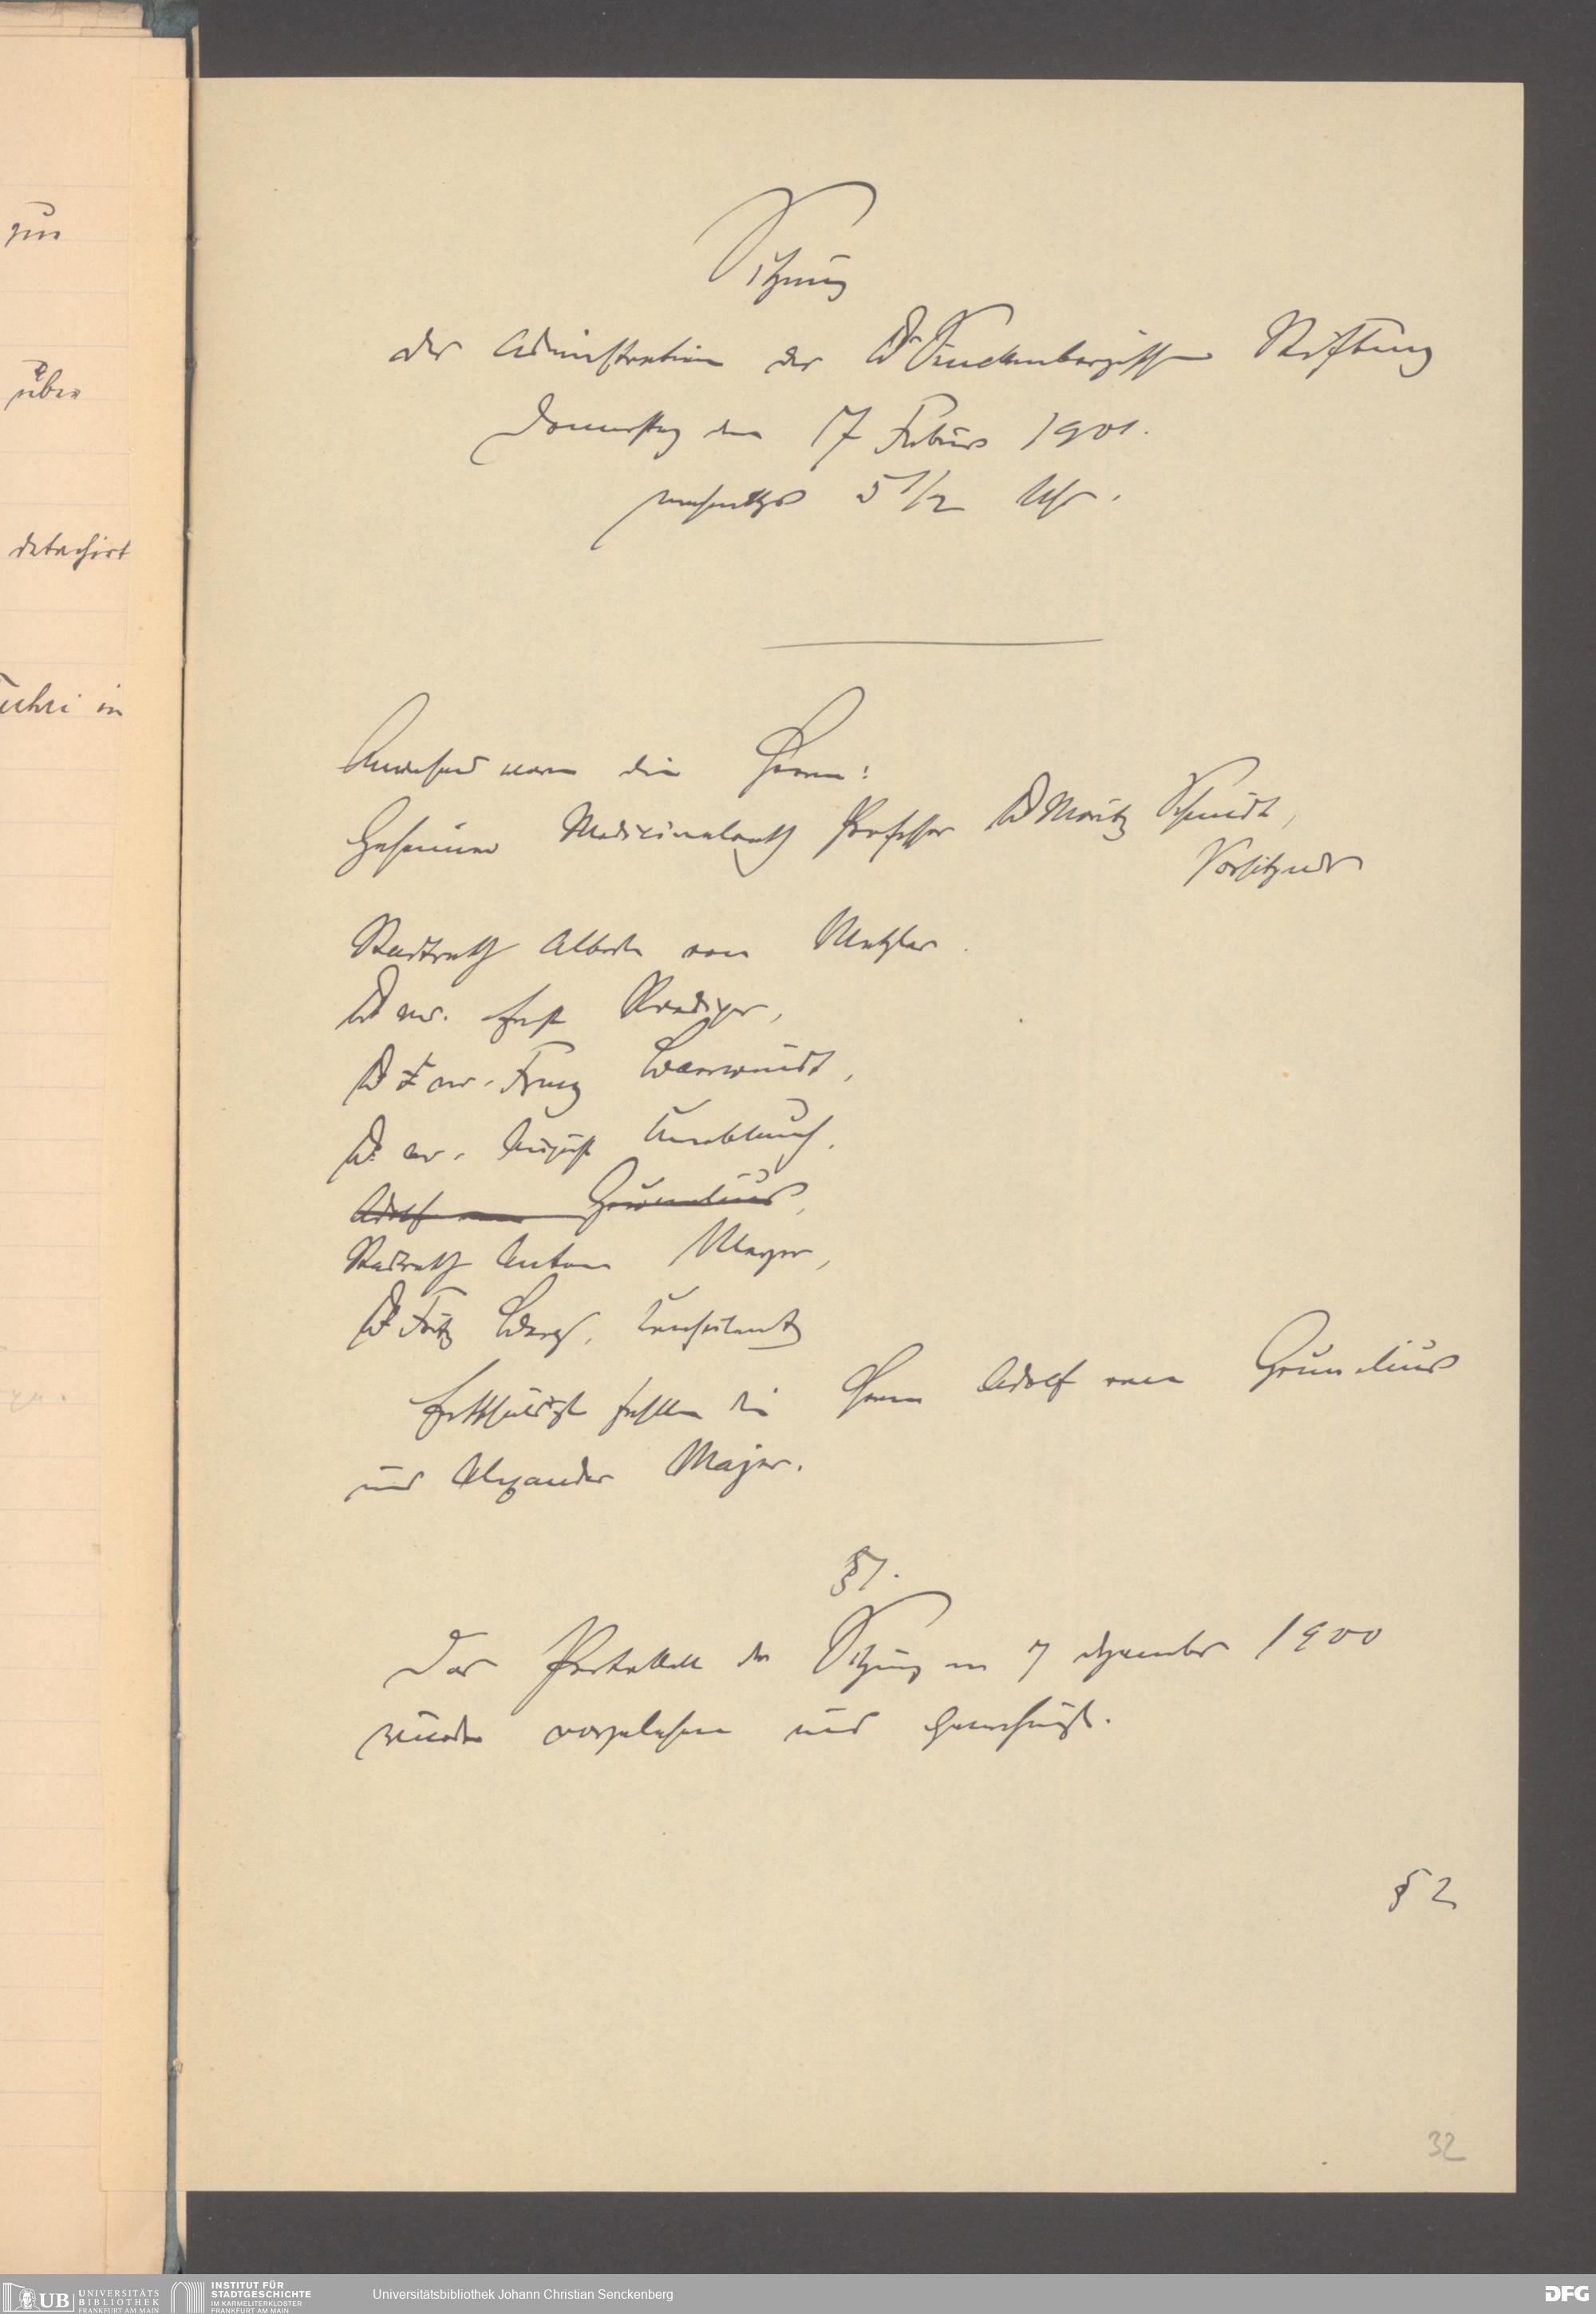 zur
über
detachirt
in
Sitzung
der Administration der Dr Senckenbergischen Stiftung
Donnerstag den 17 1901.
nachmittgs 5 1/2 Uhr.
Anwesend waren die Herren:
Geheimer Medicinalrath Professor Dr Moritz Schmidt,
Vorsitzender
Stadtrath Albert von Metzler.
Dr med. Ernst Roediger,
Dr med. Franz Baerwindt,
Dr med. August Knoblauch,
Adolf von Grunelius,
Stadtrath Anton Meyer,
Dr Fritz Berg, Consulent
Entschuldigt fehlten die Herren Adolf von Grunelius
und Alexander Majer.
§ 1.
Das Protokoll der Sitzung vom 7 Dezember 1900
wurde vorgelesen und genehmigt.
§ 2
32
UB UNIVERSITÄTS
BIBLIOTHEK
FRANKFURT AM MAIN
INSTITUT FÜR
STADTGESCHICHTE
IM KARMELITERKLOSTER
FRANKFURT AM MAIN
Universitätsbibliothek Johann Christian Senckenberg
DFG